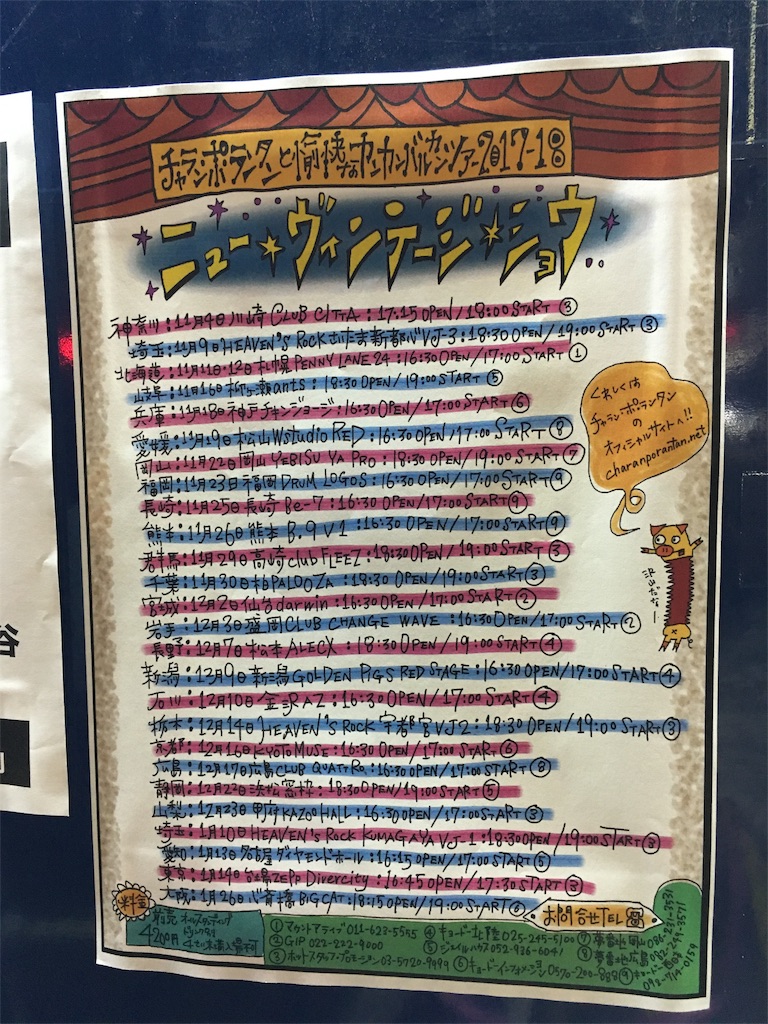 チャラン・ポランタンと愉快なカンカンバルカンツアー2017-18
ニュー★ヴィンテージ★ショウ
神奈川:11月4日川崎CLUB CITTA:17:15 OPEN/18:00 START③
埼玉:11月9日HEAVEN'S ROCKさいたま新都心VJ-3:18:30 OPEN/19:00 START③
北海道:11月11日・12日札幌PENNY LANE 24:16:30 OPEN/17:00 START①
岐阜:11月16日柳ヶ瀬ants:18:30 OPEN/19:00 START⑤
兵庫:11月18日神戸チキンジョージ:16:30 OPEN/17:00 START⑥
愛媛:11月19日松山Wstudio RED:16:30 OPEN/17:00 START⑧
岡山:11月22日岡山YEBISU YA PRO:18:30 OPEN/19:00 START⑦
福岡:11月23日福岡DRUM LOGOS:16:30 OPEN/17:00 START⑨
長崎:11月25日長崎Be-7:16:30 OPEN/17:00 START⑨
熊本:11月26日熊本B.9 V1:16:30 OPEN/17:00 START⑨
群馬:11月29日高崎club FLEEZ:18:30 OPEN/19:00 START③
千葉:11月30日柏PALOOZA:18:30 OPEN/19:00 START③
宮城:12月2日仙台darwin:16:30 OPEN/17:00 START②
岩手:12月3日盛岡CLUB CHANGE WAVE:16:30 OPEN/17:00 START②
長野:12月7日松本ALECX:18:30 OPEN/19:00 START④
新潟:12月9日新潟GOLDEN PIGS RED STAGE:16:30 OPEN/17:00 START④
石川:12月10日金沢AZ:16:30 OPEN/17:00 START④
栃木:12月14日HEAVEN'S ROCK宇都宮VJ2:18:30 OPEN/19:00 START③
京都:12月16日KYOTO MUSE:16:30 OPEN/17:00 START⑥
広島:12月17日広島CLUB QUATTRO:16:30 OPEN/17:00 START⑧
静岡:12月22日浜松窓枠:18:30 OPEN/19:00 START⑤
山梨:12月23日甲府KAZOO HALL:16:30 OPEN/17:00 START③
埼玉:1月10日HEAVEN'S ROCK KUMAGAYA VJ-1:18:30 OPEN/19:00 START③
愛知:1月13日名古屋ダイヤモンドホール:16:15 OPEN/17:00 START⑤
東京:1月14日台場ZEPP Divercity:16:45 OPEN/17:30 START③
大阪:1月26日心斎橋BIGCAT:18:15 OPEN/19:00 START⑥
くわしくは
チャラン・ポランタン
の
オフィシャルサイトへ!!
charanporantan.net
沢山だなー
料金
前売
4200円
オールスタンディング
ドリンク別
4才以上入場可
お問合せTEL
①マウントアライブ011-623-5555
②GIP 022-222-9999
③ホットスタッフ・プロモーション03-5720-9999
④キョードー北陸025-245-5100
⑤ジェイルハウス052-936-6041
⑥キョードーインフォメーション0570-200-888
⑦夢番地岡山086-231-3531
⑧夢番地広島082-249-3571
⑨キョードー西日本092-714-0159
谷